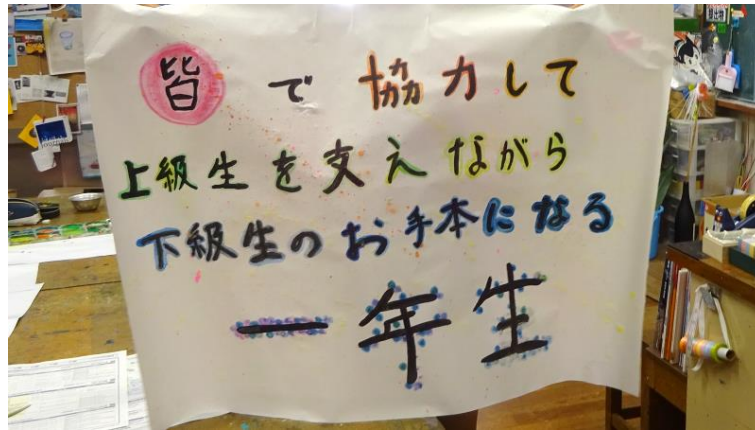 皆で協力して
上級生を支えながら
下級生のお手本になる
一年生